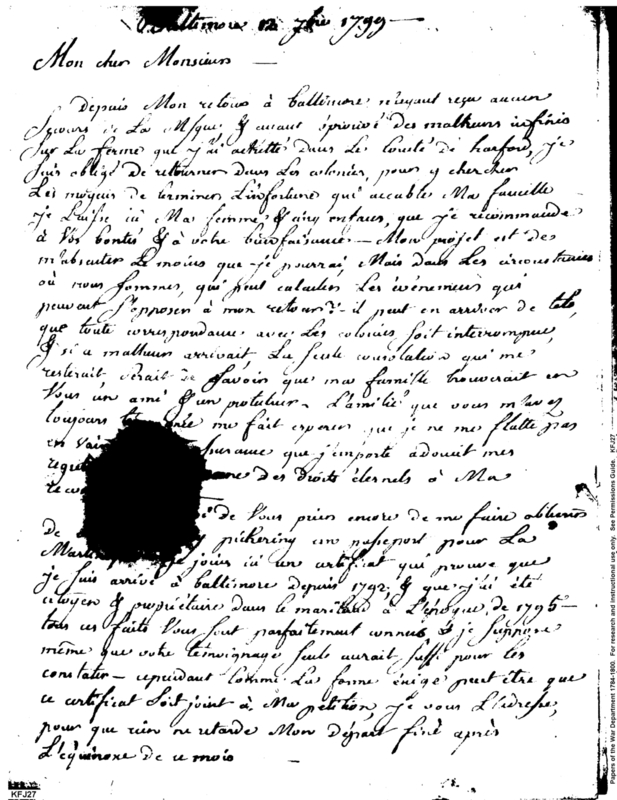 Baltimore 12 7bre 1799 —
Mon cher Monsieur —
Depuis Mon retour à baltimore n'ayant reçu aucun
Secours de La Mque, & ayant éprouvé des malheurs infinis
sur La ferme que j'ai achettée dans Le Comté de harford, je
suis obligé de retourner dans Les colonies, pour y chercher
Les moyens de terminer L'infortune qui accable Ma famille
je Laisse ici Ma femme & cinq enfans, que je recommande
à Vos bontés & à votre bienfaisance — Mon projet est de
m'absenter Le moins que je pourrai, Mais dans Les circonstances
où nous sommes, qui peut calculer Les événemens qui
peuvent S'opposer à mon retour? — il peut en arriver de tels,
que toute correspondance avec Les colonies soit interrompue,
& si ce malheur arrivait, La seule consolation qui me
resterait serait de Savoir que ma famille trouverait en
Vous un ami & un protecteur — L'amitié que vous m'avez
toujours me fait esperer que je ne me flatte pas
en Vain que j'emporte adoucit mes
des droits éternels à Ma
de Vous prier encore de me faire obtenir
de pickering un passeport pour La
je joins ici un certificat qui prouve que
je suis arrivé à baltimore depuis 1792, & que j'ai été
citoyen & propriétaire dans le mariland à L'époque de 1795 —
tous ces faits Vous sont parfaitement connus & je suppose
même que votre témoignage seule aurait suffi pour les
constater — cependant comme La forme exige peut être que
ce certificat soit joint à Ma pétition, je vous L'adresse,
pour que rien ne retarde Mon départ fixé après
L'équinoxe de ce mois
KFJ27
Papers of the War Department 1784-1800. For research and instructional use only. See Permissions Guide. KFJ27